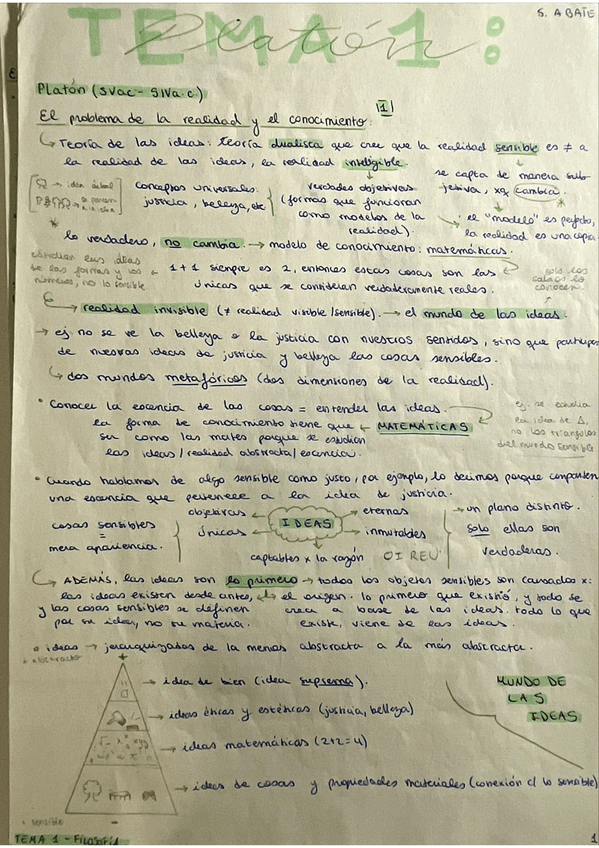 S. ABATE
TEMA 1:
Platón
Platón (SVac - SIVa.c)
El problema de la realidad y el conocimiento: 1
Teoría de las ideas: teoría dualista que cree que la realidad sensible es ≠ a
la realidad de las ideas, la realidad inteligible.
se capta de manera sub-
jetiva, xq cambia.
→ idea
conceptos universales:
justicia, belleza, etc
verdades objetivas
(formas que funcionan
como modelos de la
realidad).
el "modelo" es perfecto,
la realidad es una copia.
lo verdadero, no cambia. → modelo de conocimiento: matemáticas.
estudian las ideas
de las formas y los
números, no lo sensible
1+1 siempre es 2, entonces estas cosas son las
únicas que se consideran verdaderamente reales.
solo los
sabios lo
conocen
→ realidad invisible (≠ realidad visible/sensible). → el mundo de las ideas.
→ ej. no se ve la belleza o la justicia con nuestros sentidos, sino que participan
de nuestras ideas de justicia y belleza las cosas sensibles.
dos mundos metafóricos (dos dimensiones de la realidad).
• Conocer la esencia de las cosas = entender las ideas.
la forma de conocimiento tiene que
ser como las mates porque se estudian
las ideas / realidad abstracta / esencia.
← MATEMÁTICAS
ej. se estudia
la idea de △,
no los triángulos
del mundo sensible
• Cuando hablamos de algo sensible como justo, por ejemplo, lo decimos porque comparten
una esencia que pertenece a la idea de justicia.
cosas sensibles
=
mera apariencia.
objetivas
únicas
IDEAS
eternas
inmutables
captables x la razón
OI REU
→ un plano distinto.
solo ellas son
verdaderas.
ADEMÁS, las ideas son lo primero → todos los objetos sensibles son causados x:
las ideas existen desde antes,
y las cosas sensibles se definen
por su idea, no su materia.
el origen. lo primero que existió, y todo se
crea a base de las ideas. todo lo que
existe, viene de las ideas.
ideas → jerarquizadas de la menos abstracta a la más abstracta.
+ abstracto
+
→ idea de bien (idea suprema).
→ ideas éticas y estéticas (justicia, belleza)
→ ideas matemáticas (2+2=4)
→ ideas de cosas y propiedades materiales (conexión c/ lo sensible)
MUNDO DE
LAS
IDEAS
+ sensible
-
TEMA 1 - Filosofía
1